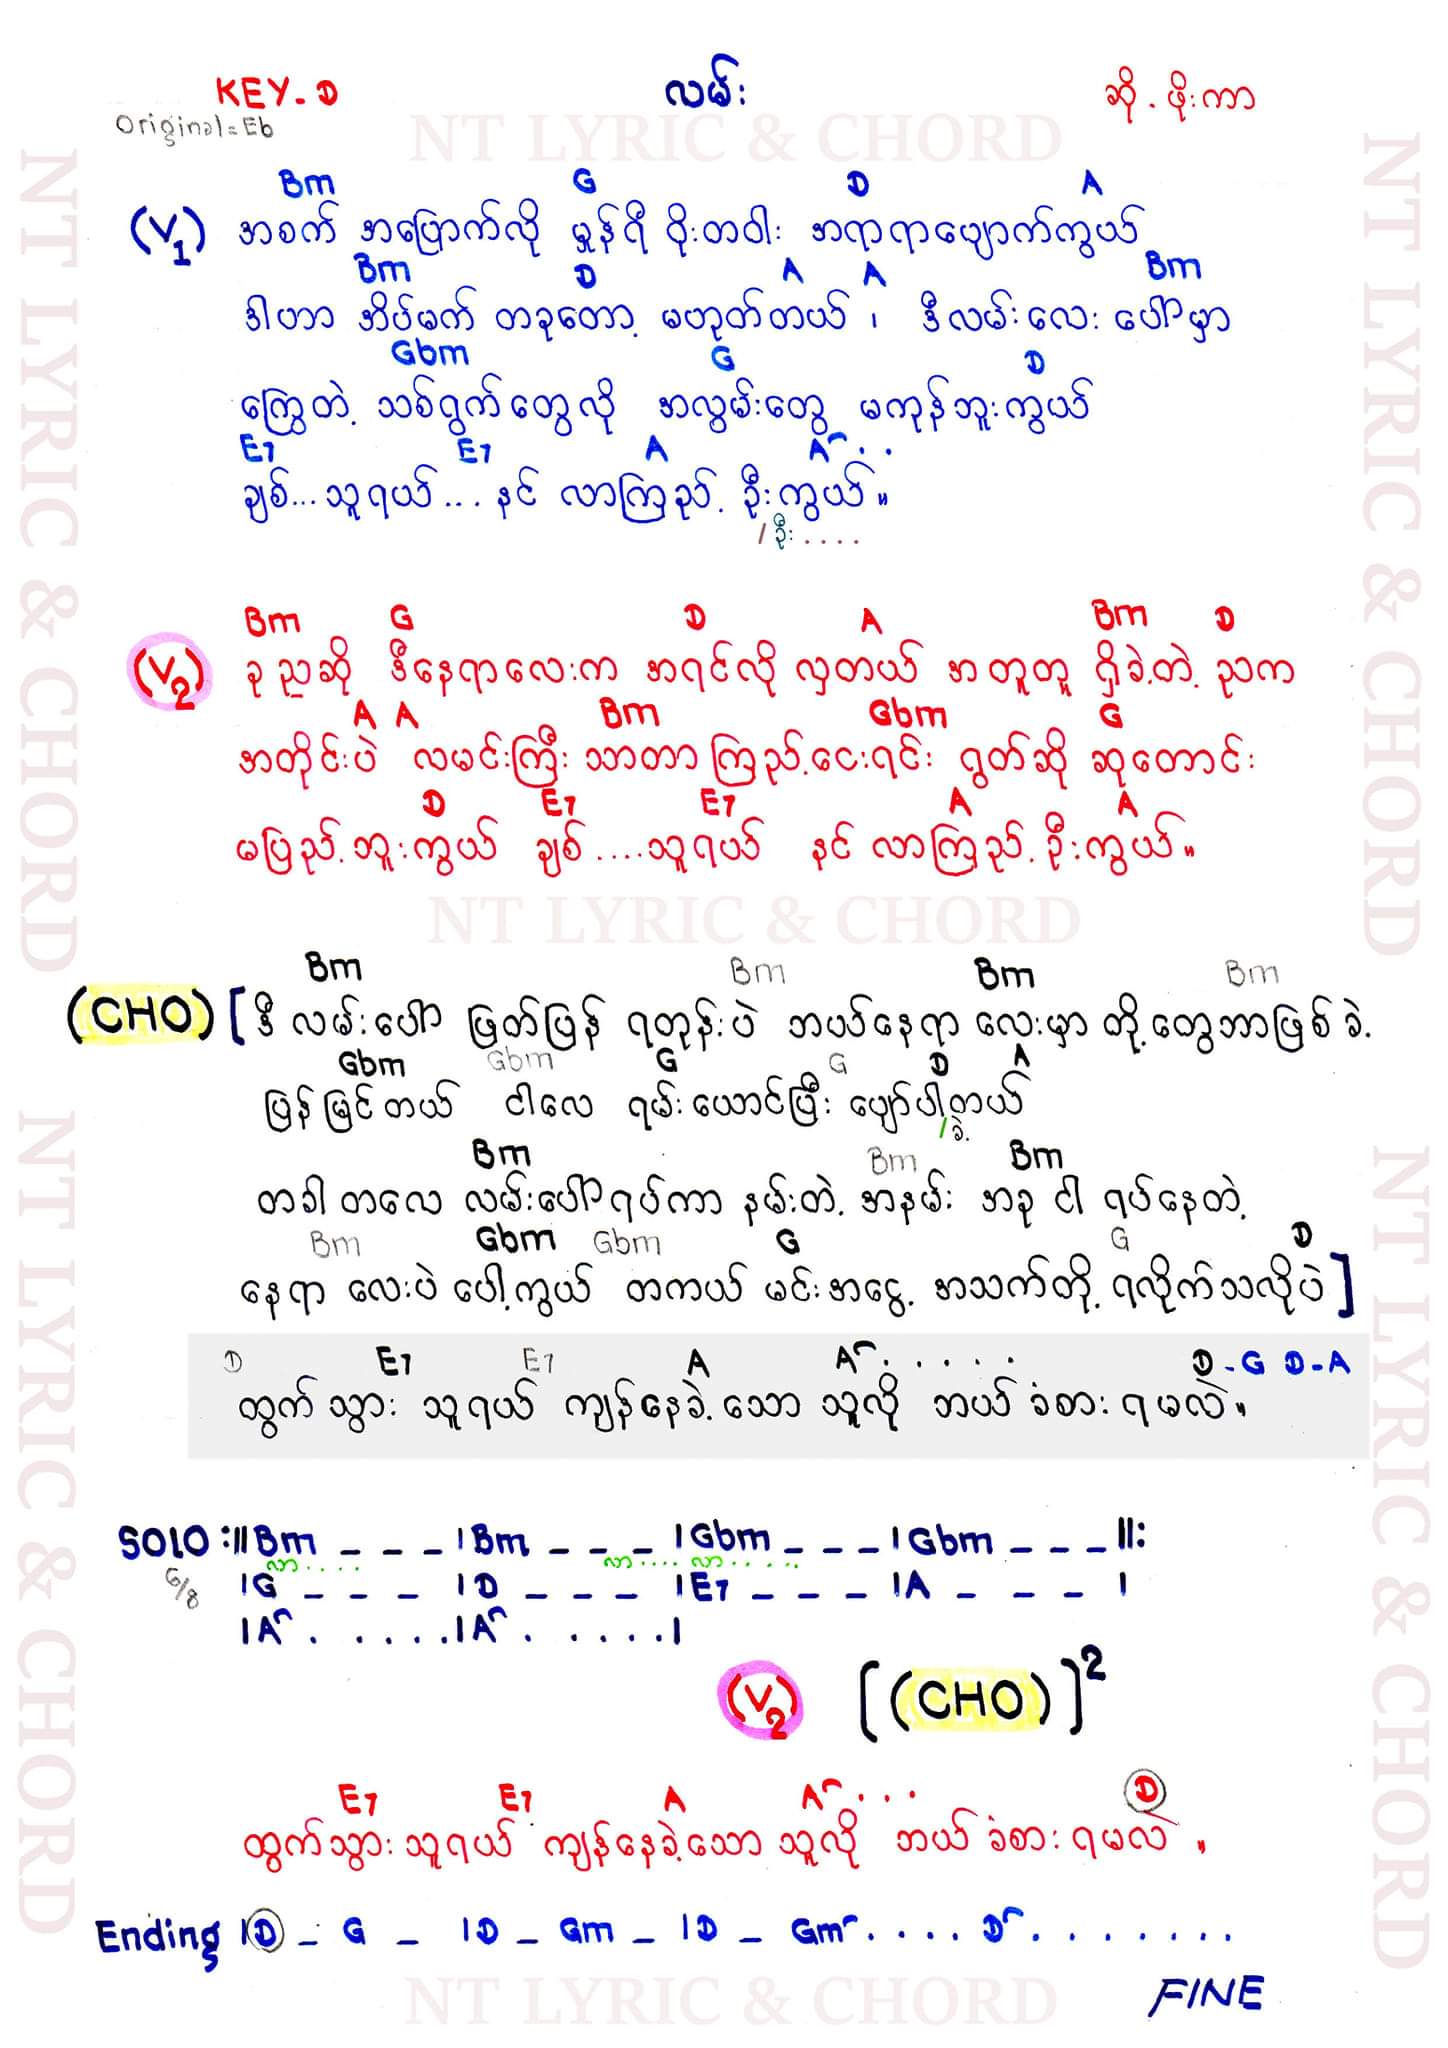 KEY-D
လမ်း
ဆို-ဖိုးကာ
Original=Eb
NT LYRIC & CHORD
Bm G D A
(V1) အစက် အပြောက်လို မှုန်ရီ ဝိုးတဝါး အရာရာပျောက်ကွယ်
Bm D A A Bm
ဒါဟာ အိပ်မက် တခုတော့ မဟုတ်တယ် ၊ ဒီလမ်းလေး ပေါ်မှာ
Gbm G D
ကြွေတဲ့ သစ်ရွက်တွေလို အလွမ်းတွေ မကုန်ဘူးကွယ်
E7 E7 A A . .
ချစ်...သူရယ်... နင် လာကြည့် ဦးကွယ်။
/ဦး....
Bm G D A Bm D
(V2) ခု ညဆို ဒီနေရာလေးက အရင်လို လှတယ် အတူတူ ရှိခဲ့တဲ့ ညက
A A Bm Gbm G
အတိုင်းပဲ လမင်းကြီး သာတာ ကြည့်ငေးရင်း ရွတ်ဆို ဆုတောင်း
D E7 E7 A A
မပြည့်ဘူးကွယ် ချစ်....သူရယ် နင် လာကြည့် ဦးကွယ်။
NT LYRIC & CHORD
Bm Bm Bm Bm
(CHO) [ ဒီ လမ်းပေါ် ဖြတ်ပြန် ရတုန်းပဲ ဘယ်နေရာ လေးမှာ တို့တွေဘာဖြစ်ခဲ့
Gbm Gbm G G D A
ပြန်မြင်တယ် ငါလေ ရမ်းယောင်ပြီး ပျော်ပါ့တယ်
/ခဲ့
Bm Bm Bm
တခါ တလေ လမ်းပေါ်ရပ်ကာ နမ်းတဲ့ အနမ်း အခု ငါ ရပ်နေတဲ့
Bm Gbm Gbm G G D
နေရာ လေးပဲ ပေါ့ကွယ် တကယ် မင်းအငွေ့ အသက်တို့ ရလိုက်သလိုပဲ ]
D E7 E7 A A . . . . . D-G D-A
ထွက်သွား သူရယ် ကျန်နေခဲ့သော သူလို ဘယ် ခံစား ရမလဲ။
SOLO :||Bm _ _ _ |Bm _ _ _ |Gbm _ _ _ |Gbm _ _ _ ||:
လာ.... လာ.... လာ.....
6/8 |G _ _ _ |D _ _ _ |E7 _ _ _ |A _ _ _ |
|A . . . . . |A . . . . . |
(V2) [(CHO)]2
E7 E7 A A . . . D
ထွက်သွားသူရယ် ကျန်နေခဲ့သော သူလို ဘယ် ခံစား ရမလဲ ။
Ending |D _ G _ |D _ Gm _ |D _ Gm . . . . D . . . . . . .
NT LYRIC & CHORD
FINE
NT LYRIC & CHORD
NT LYRIC & CHORD
NT LYRIC & CHORD
NT LYRIC & CHORD